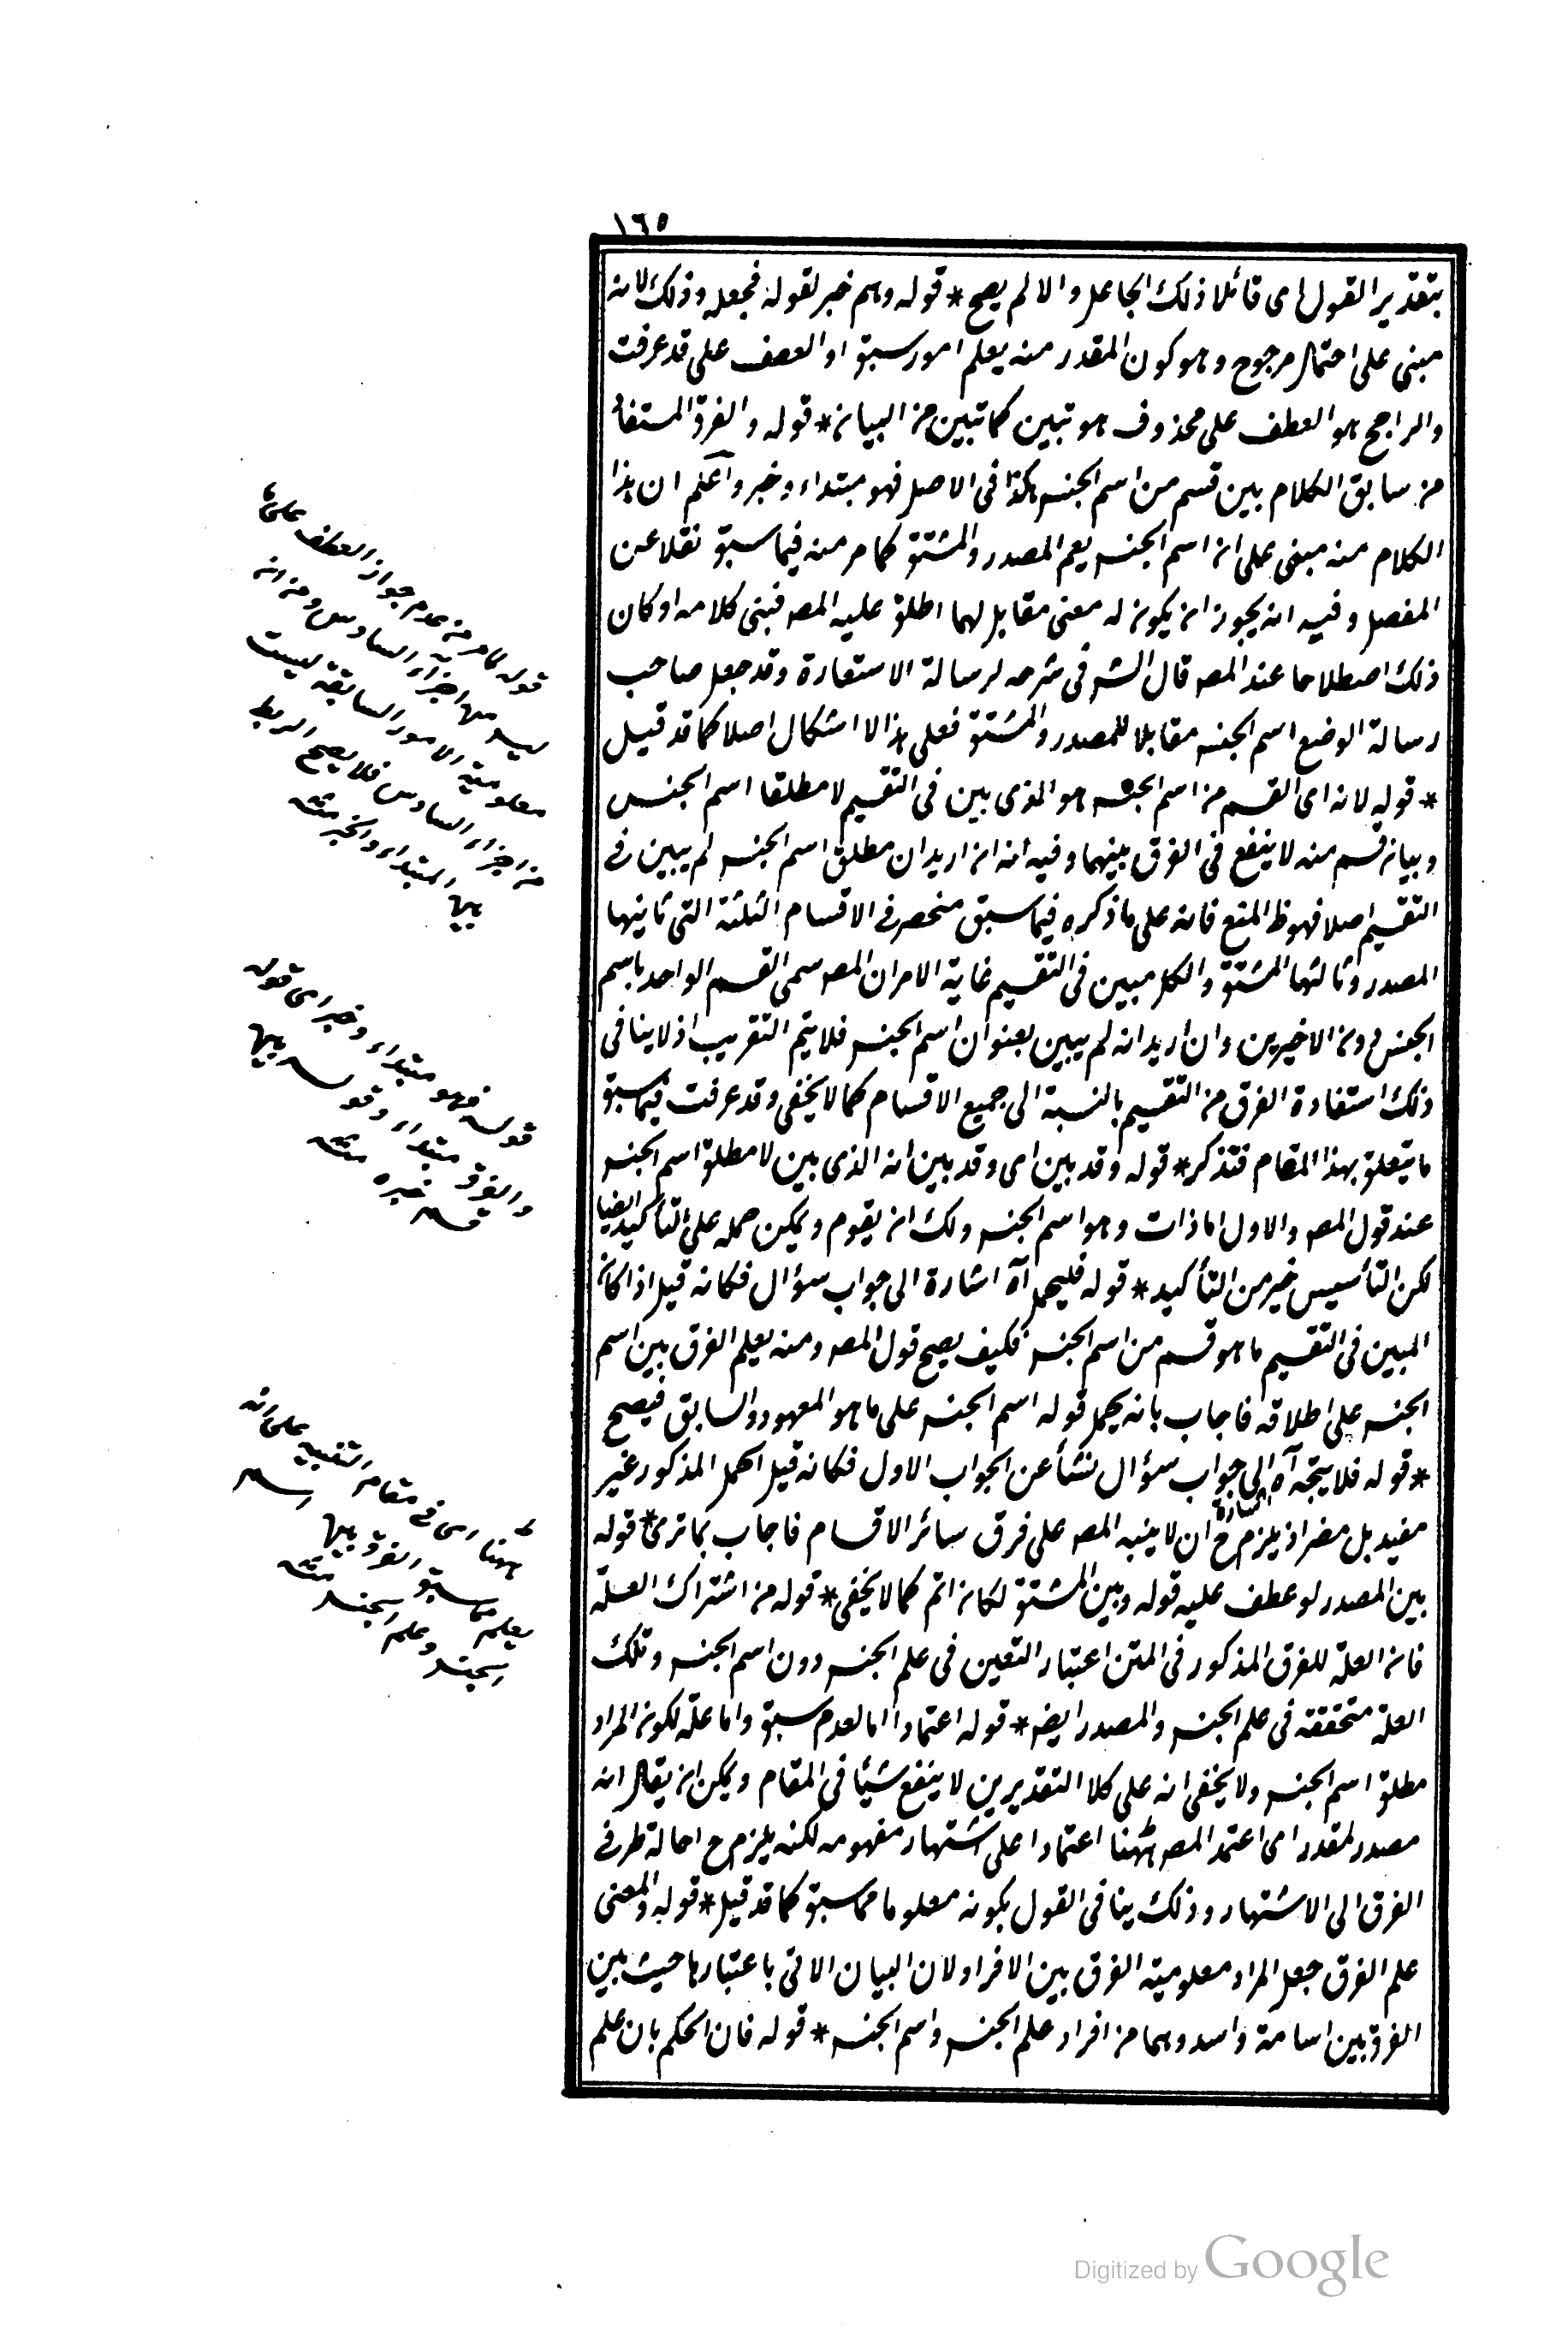 ١٦٥
بتقدير القول اى قائلا ذلك الجاعل والا لم يصح * قوله وهم خبر لقوله فجعله وذلك لانه
مبنى على احتمال مرجوح وهو كون المقدر منه يعلم امور سبق او العطف على قد عرفت
والراجح هو العطف على محذوف هو تبين كما تبين من البيان * قوله والفرق المستفاد
من سابق الكلام بين قسم من اسم الجنس هكذا فى الاصل فهو مبتداء وخبر واعلم ان هذا
الكلام منه مبنى على ان اسم الجنس يعم المصدر والمشتق كما مر منه فيما سبق نقلا عن
المفصل وفيه انه يجوز ان يكون له معنى مقابل لهما اطلق عليه المصـ فبنى كلامه او كان
ذلك اصطلاحا عند المصـ قال الشـ فى شرحه لرسالة الاستعارة وقد جعل صاحب
رسالة الوضع اسم الجنس مقابلا للمصدر والمشتق فعلى هذا لا اشكال اصلا كما قد قيل
* قوله لانه اى القسم من اسم الجنس هو الذى بين فى التقسيم لا مطلقا اسم الجنس
وبيان قسم منه لا ينفع فى الفرق بينهما وفيه انه ان اريد ان مطلق اسم الجنس لم يبين فى
التقسيم اصلا فهو ظ المنع فانه على ما ذكره فيما سبق منحصر فى الاقسام الثلثة التى ثانيها
المصدر وثالثها المشتق والكل مبين فى التقسيم غاية الامر ان المصـ سمى القسم الواحد باسم
الجنس دون الاخيرين وان اريد انه لم يبين بعنوان اسم الجنس فلا يتم التقريب اذ لا ينافى
ذلك استفادة الفرق من التقسيم بالنسبة الى جميع الاقسام كما لا يخفى وقد عرفت فيما سبق
ما يتعلق بهذا المقام فتذكر * قوله وقد بين اى وقد بين انه الذى بين لا مطلق اسم الجنس
عند قول المصـ والاول اما ذات وهو اسم الجنس ولك ان يقوم ويمكن حمله على التأكيد ايضا
لكن التأسيس خير من التأكيد * قوله فليحمل آه اشارة الى جواب سؤال فكانه قيل اذا كان
المبين فى التقسيم ما هو قسم من اسم الجنس فكيف يصح قول المصـ ومنه يعلم الفرق بين اسم
الجنس على اطلاقه فاجاب بانه يحمل قوله اسم الجنس على ما هو المعهود والسابق فيصح
* قوله فلا يتجه آه اشارة الى جواب سؤال نشأ عن الجواب الاول فكانه قيل الحمل المذكور غير
مفيد بل مضر اذ يلزم ح ان لا ينبه المصـ على فرق سائر الاقسام فاجاب بما ترى * قوله
بين المصدر لو عطف عليه قوله وبين المشتق لكان اتم كما لا يخفى * قوله من اشتراك العلة
فان العلة للفرق المذكور فى المتن اعتبار التعين فى علم الجنس دون اسم الجنس وتلك
العلة متحققة فى علم الجنس والمصدر ايضـ * قوله اعتمادا اما لعدم سبق واما علة لكون المراد
مطلق اسم الجنس ولا يخفى انه على كلا التقديرين لا ينفع شيئا فى المقام ويمكن ان يقال انه
مصدر لمقدر اى اعتمد المصـ ههنا اعتمادا على اشتهار مفهومه لكنه يلزم ح احالة طرفى
الفرق الى الاشتهار وذلك ينافى القول بكونه معلوما مما سبق كما قد قيل * قوله والمعنى
علم الفرق جعل المراد معلومية الفرق بين الافراد لان البيان الاتى باعتبارها حيث بين
الفرق بين اسامة واسد وهما من افراد علم الجنس واسم الجنس * قوله فان الحكم بان علم
قوله لما مر من عدم جواز العطف على
ليس من اجزاء السادس ومن انه
معلومية الامور السابقة ليست
من اجزاء السادس فلا يصح الربط
بين المبتداء والخبر منه
قوله فهو مبتداء وخبر اى قوله
والفرق مبتداء وقوله بين
قسم خبره منه
ههنا اى فى مقام التنبيه على انه
يعلم مما سبق الفرق بين اسم
الجنس وعلم الجنس منه
Digitized by Google